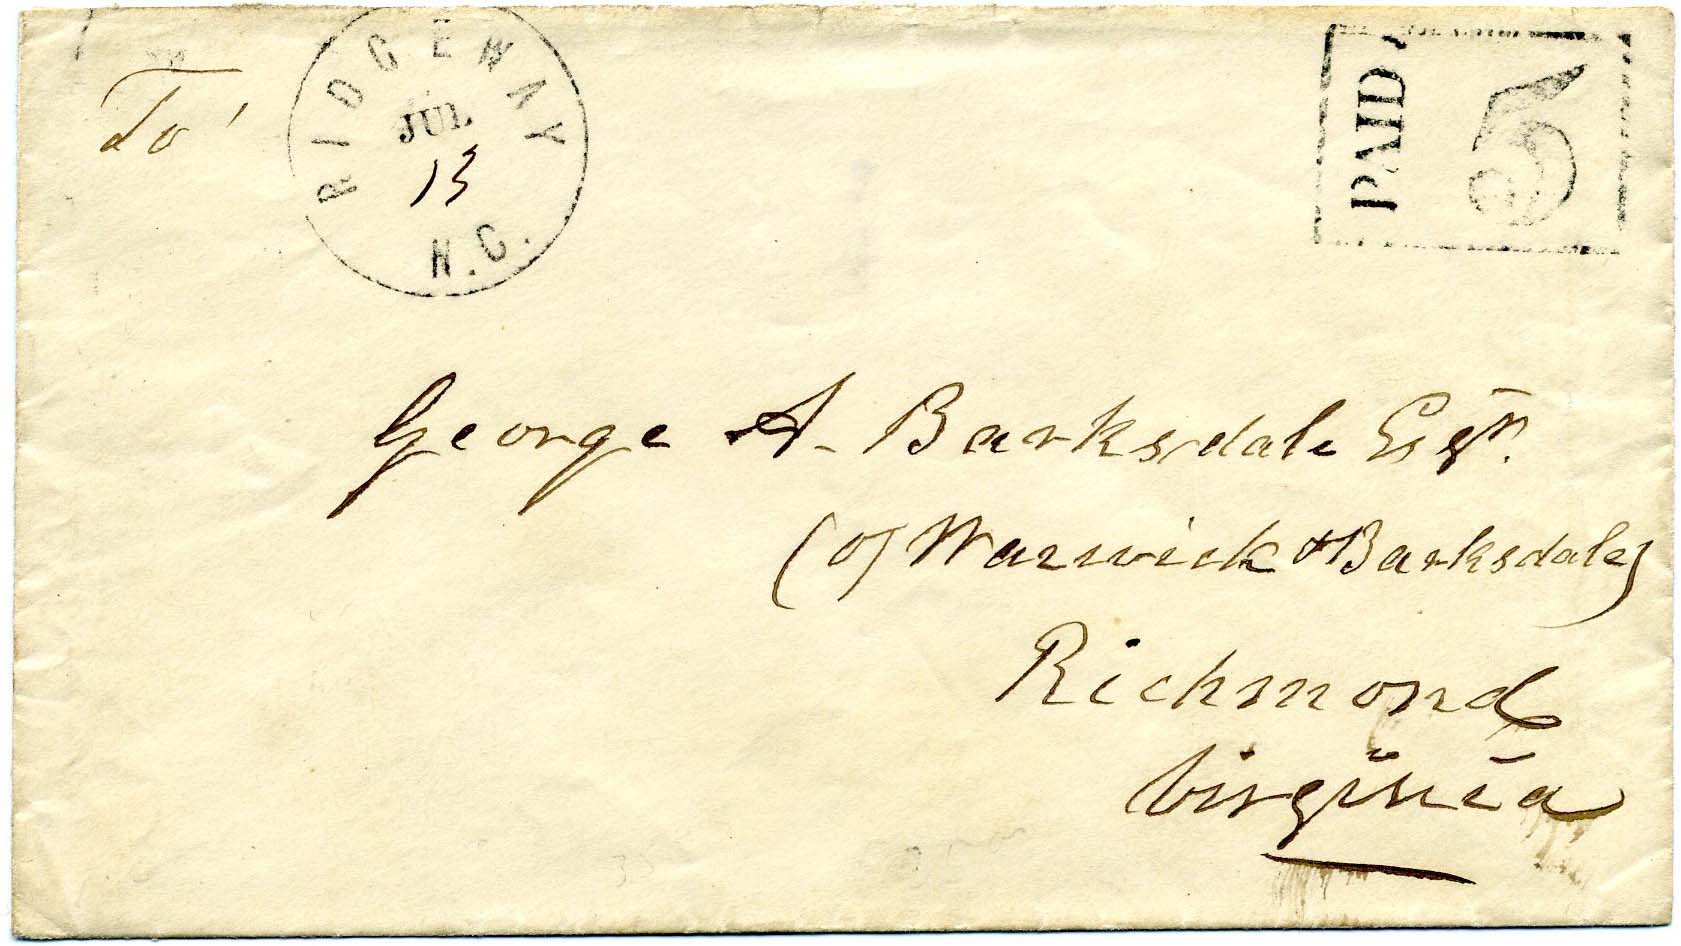 To
RIDGEWAY
JUL
13
N.C.
PAID
5
George A. Barksdale Esqr.
(of Warwick & Barksdale)
Richmond
Virginia